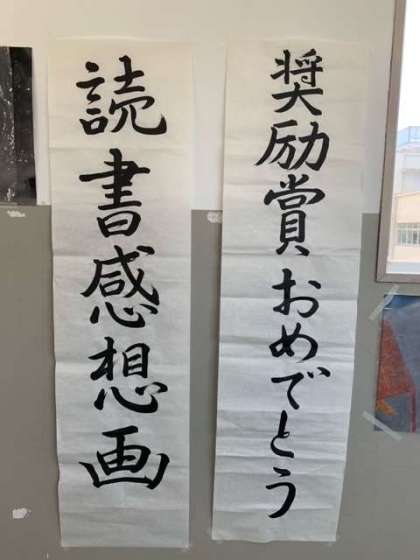 奨励賞おめでとう
読書感想画